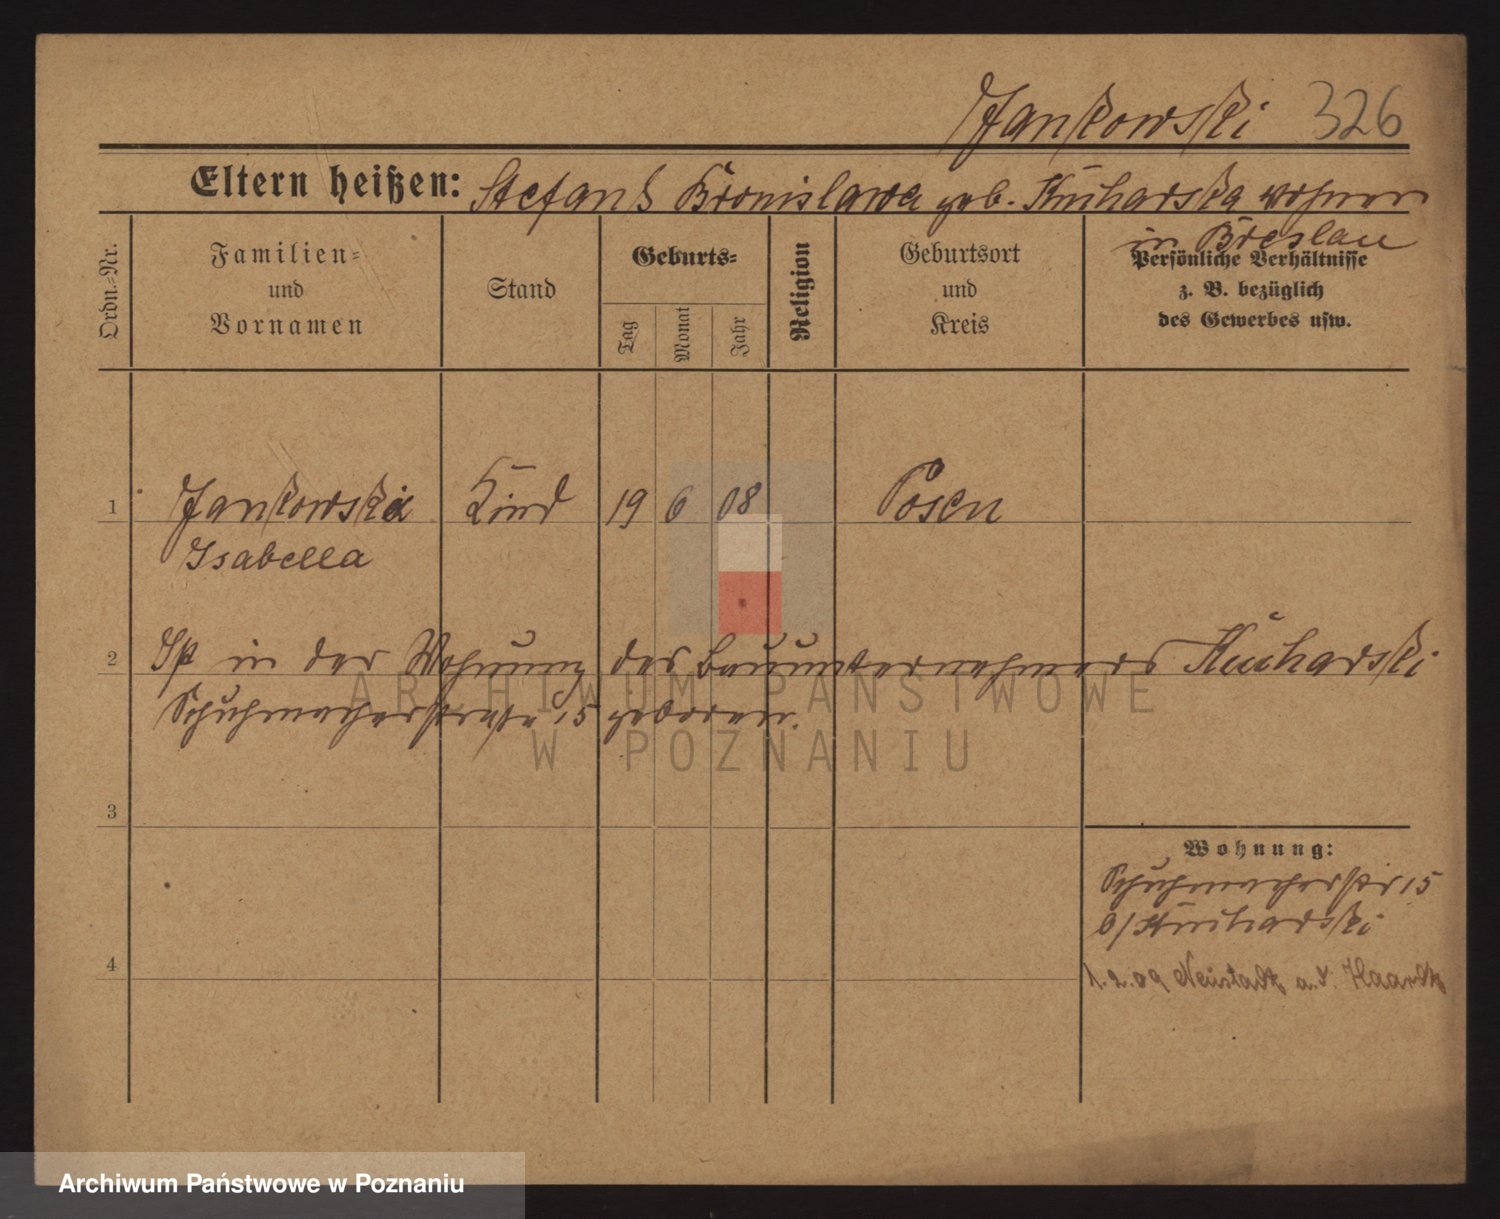 Jankowski 326
Eltern heißen: Stefan & Bronislawa geb. Kucharska wohnen
in Breslau
Ordn.-Nr.
Familien- und Vornamen
Stand
Geburts-
Tag
Monat
Jahr
Religion
Geburtsort und Kreis
Persönliche Verhältnisse
z. B. bezüglich
des Gewerbes usw.
1 Jankowska Kind 19 6 08 Posen
Isabella
2 Ist in der Wohnung des Bauunternehmers Kucharski
Schuhmacherstraße 15 geboren.
ARCHIWUM PAŃSTWOWE
W POZNANIU
3
Wohnung:
Schuhmacherstr 15
b/ Kucharski
4
1.2.09 Neustadt a.d. Haardt
Archiwum Państwowe w Poznaniu